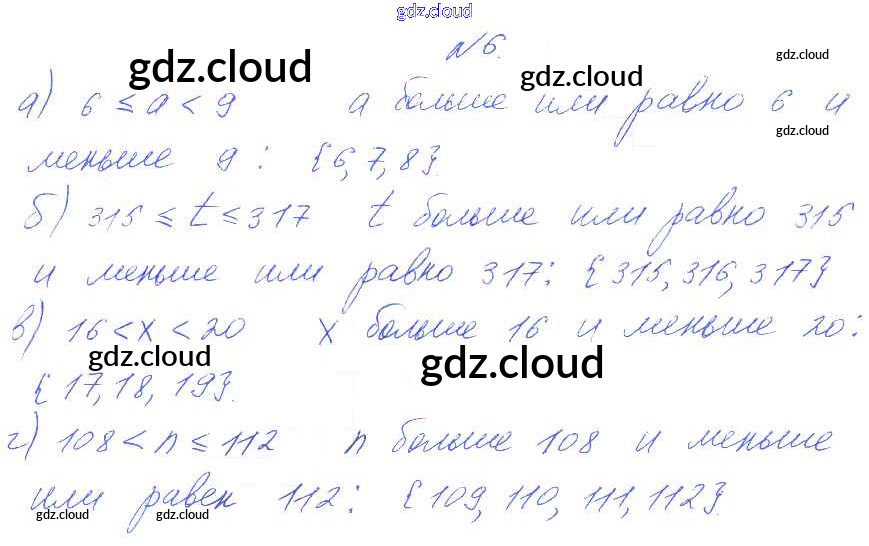 gdz.cloud
№6.
gdz.cloud gdz.cloud gdz.cloud
а) 6 ≤ a < 9 a больше или равно 6 и
gdz.cloud
меньше 9: {6, 7, 8}.
б) 315 ≤ t ≤ 317 t больше или равно 315
и меньше или равно 317: {315, 316, 317}
в) 16 < x < 20 x больше 16 и меньше 20:
gdz.cloud gdz.cloud
{17, 18, 19}.
г) 108 < n ≤ 112 n больше 108 и меньше
или равен 112: {109, 110, 111, 112}.
gdz.cloud gdz.cloud gdz.cloud